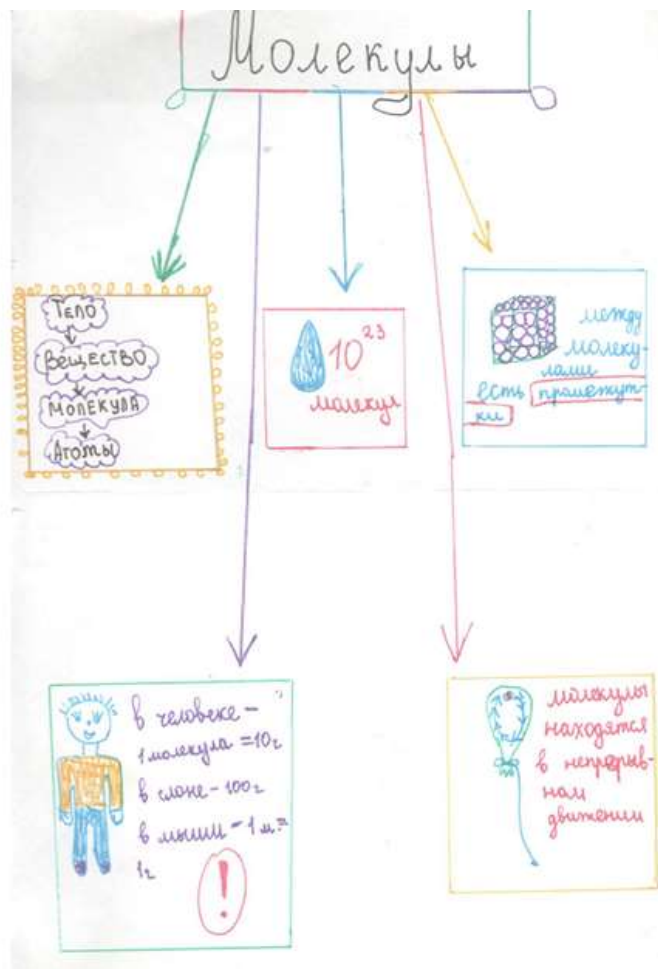 Молекулы
Тело
Вещество
Молекула
Атомы
10²³
молекул
между
молеку-
лами
есть промежут-
ки
в человеке -
1 молекула = 10г
в слоне - 100г
в мыши - 1 м =
1г
!
молекулы
находятся
в непрерыв-
ном
движении